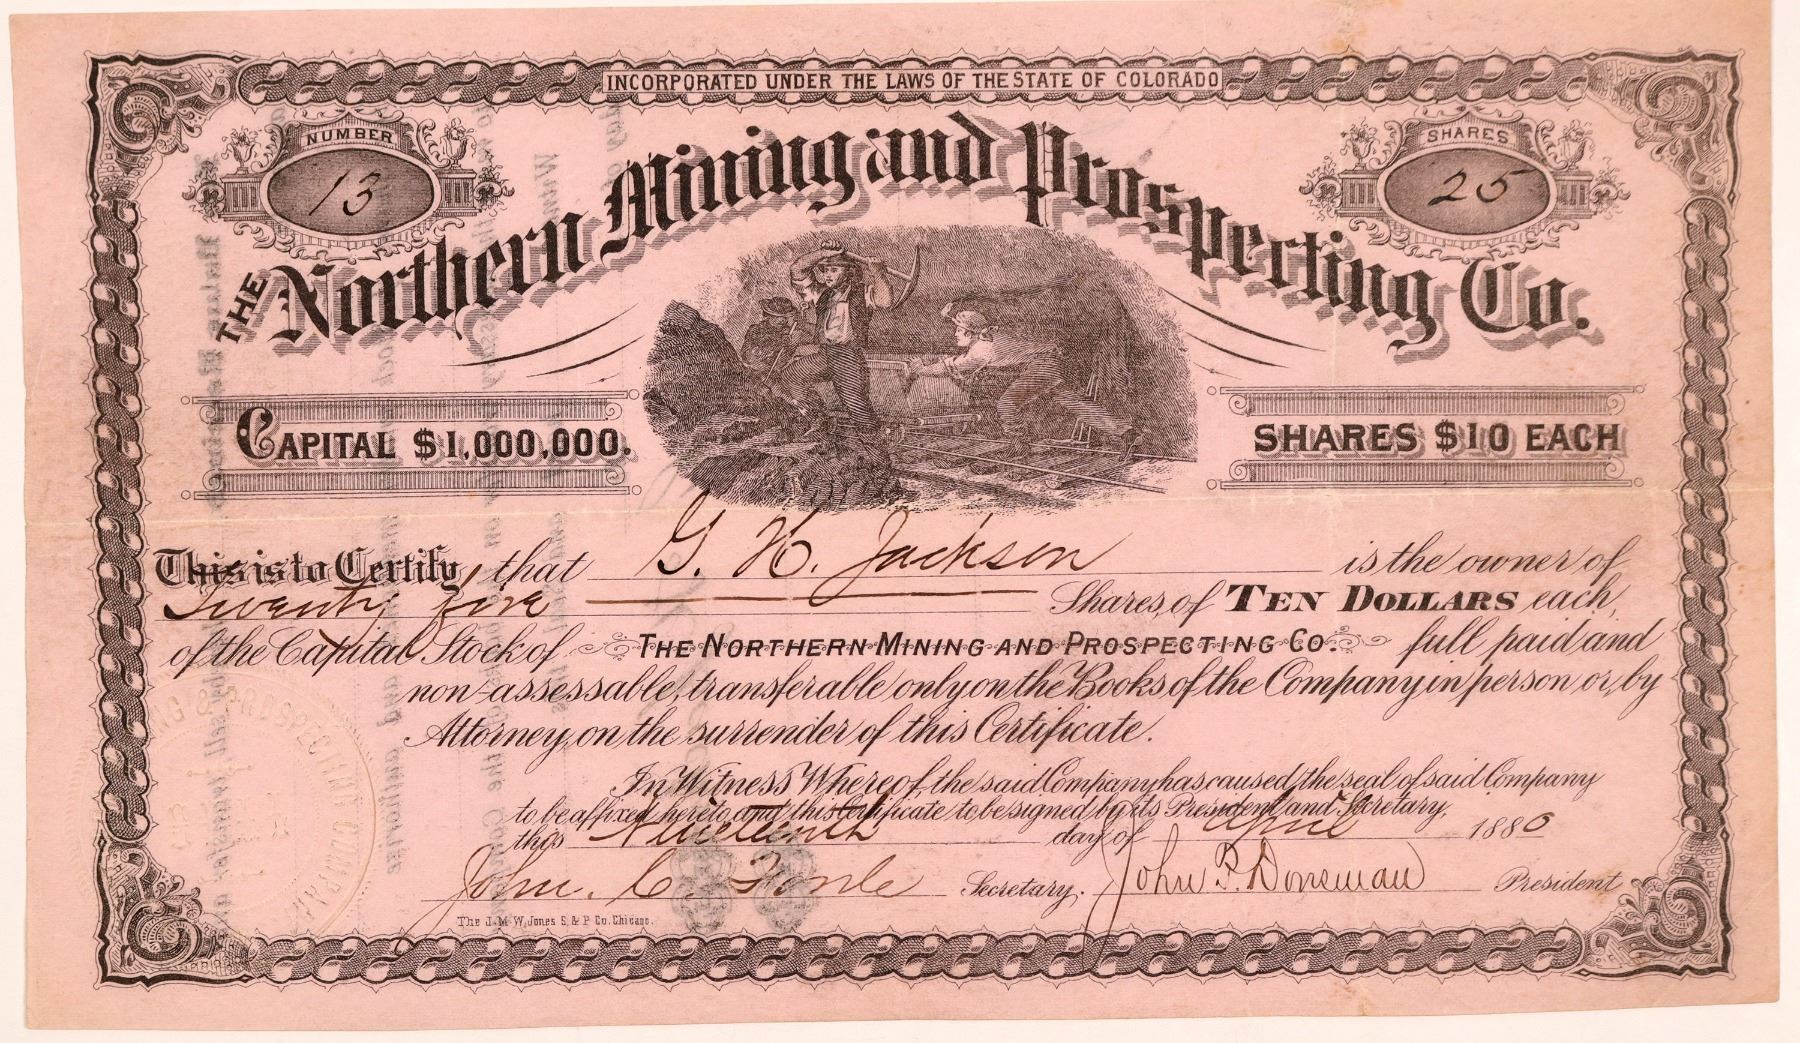 INCORPORATED UNDER THE LAWS OF THE STATE OF COLORADO
NUMBER
13
SHARES
25
THE Northern Mining and Prospecting Co.
CAPITAL $1,000,000.
SHARES $10 EACH
This is to Certify that G. H. Jackson is the owner of
Twenty five Shares, of TEN DOLLARS each,
of the Capital Stock of THE NORTHERN MINING AND PROSPECTING CO. full paid and
non-assessable, transferable only on the Books of the Company in person or by
Attorney, on the surrender of this Certificate.
In Witness Whereof, the said Company has caused the seal of said Company
to be affixed hereto and this Certificate to be signed by its President and Secretary,
this Nineteenth day of April 1880
John. C. Secretary. John P. President
The J. M. W. Jones S. & P. Co. Chicago.